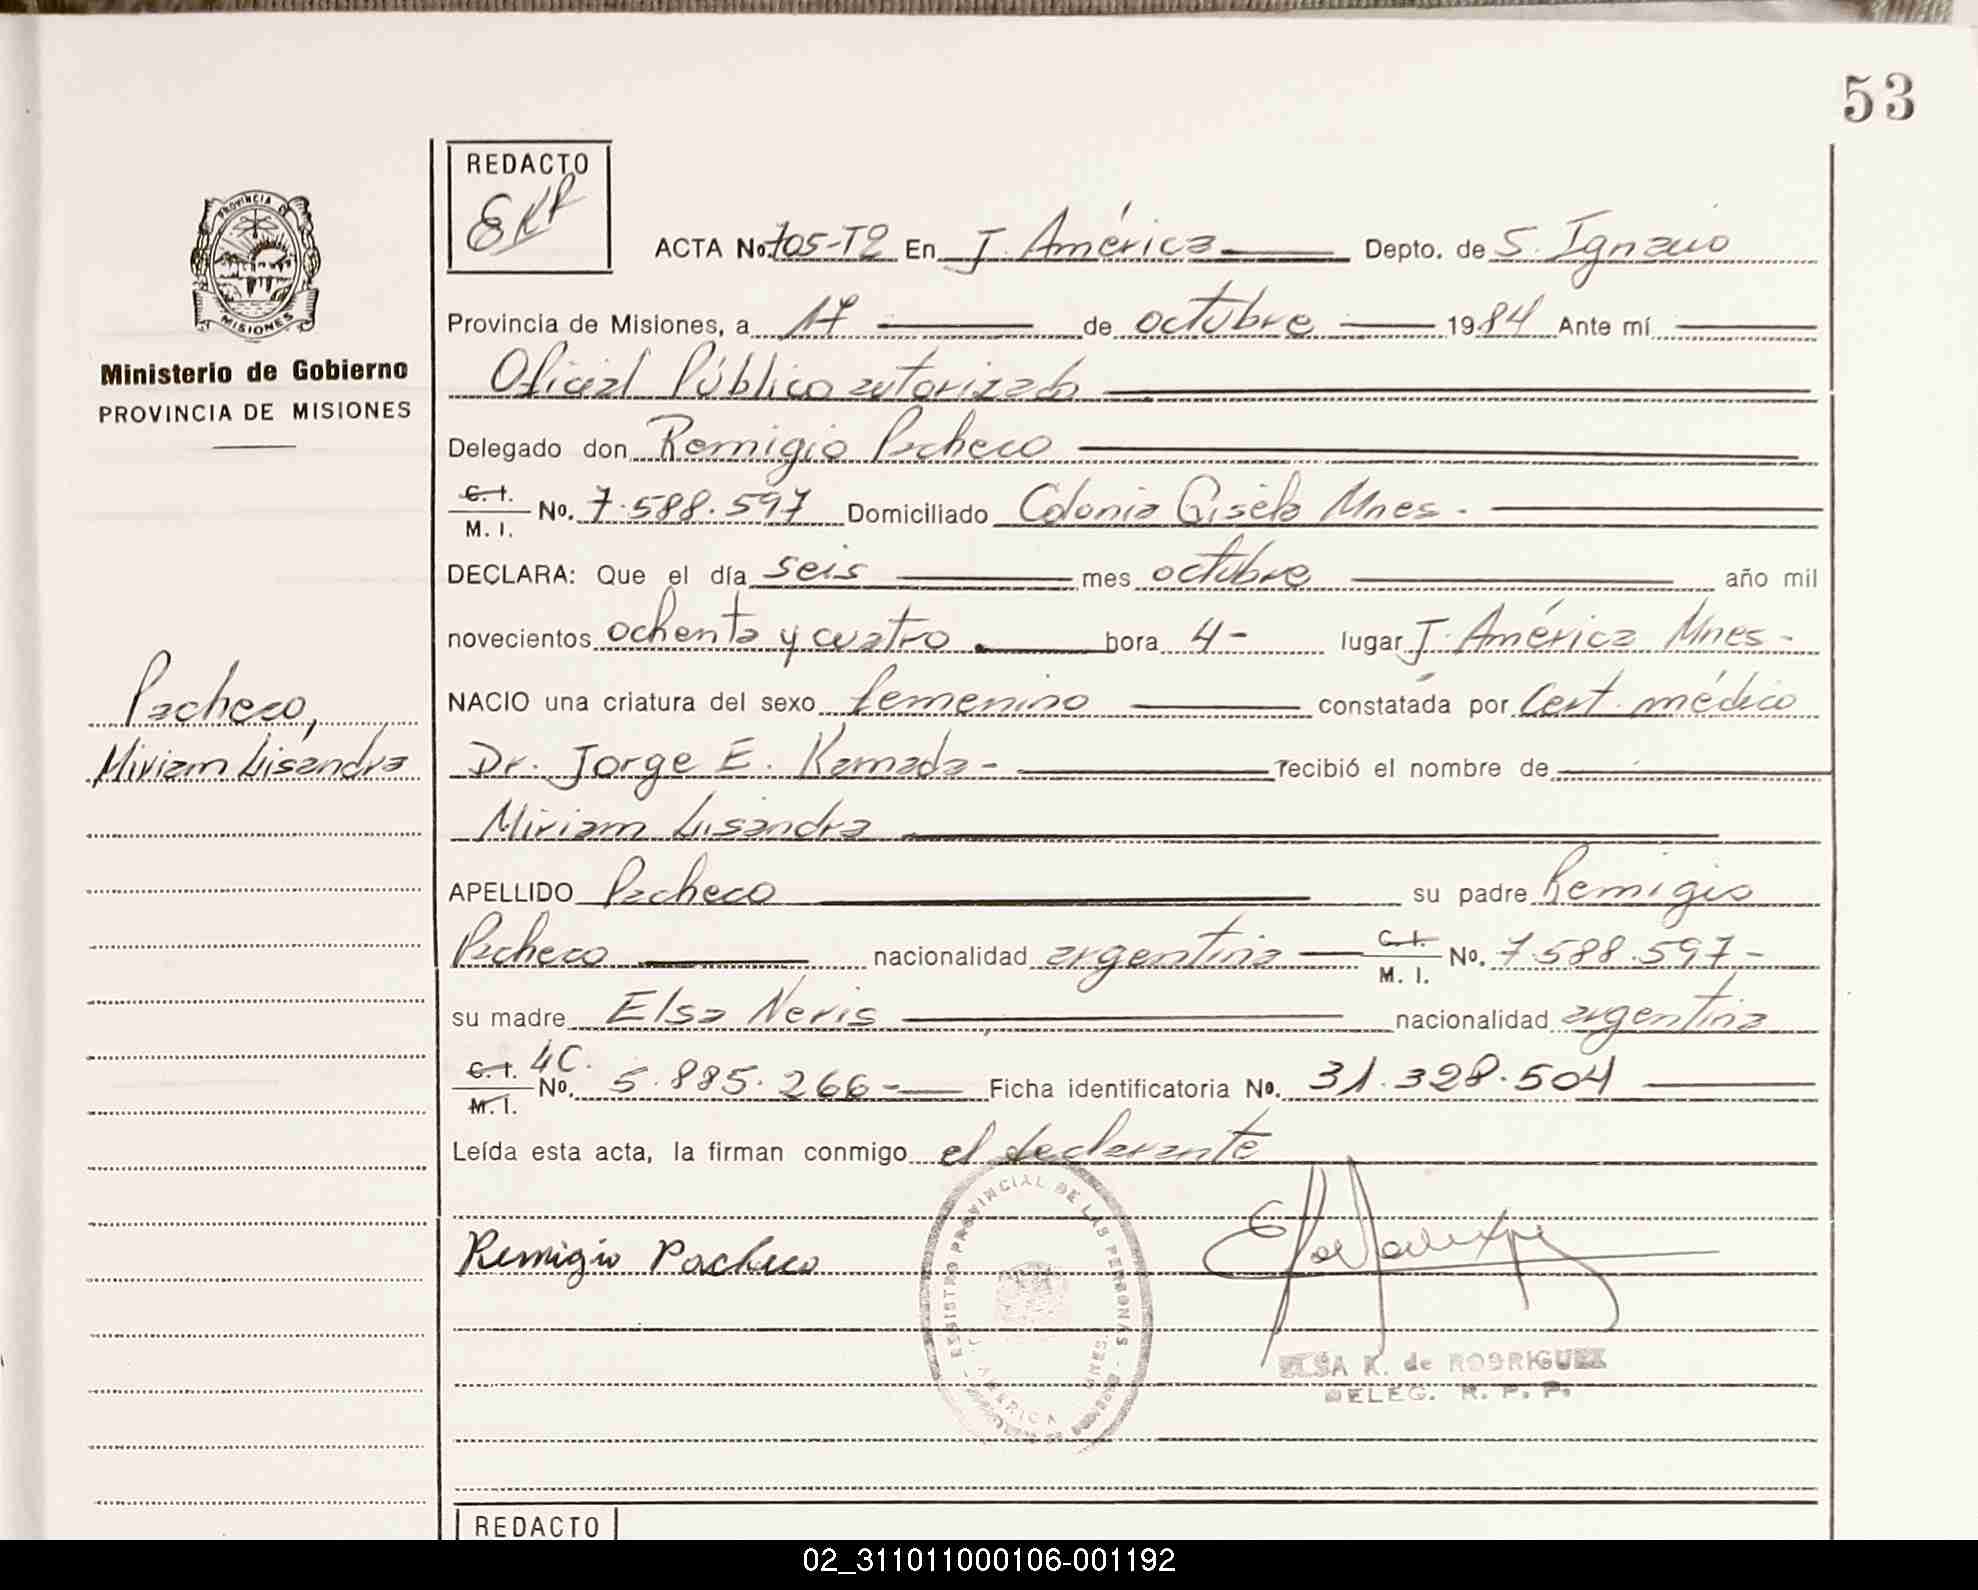 53
REDACTO
EKR
ACTA No. 705-T2 En J. América Depto. de S. Ignacio
PROVINCIA DE MISIONES
Provincia de Misiones, a 17 de octubre 1984 Ante mí
Ministerio de Gobierno
PROVINCIA DE MISIONES
Oficial Público autorizado
Delegado don Remigio Pacheco
C. I. M. I. No. 7.588.597 Domiciliado Colonia Gisela Mnes.
DECLARA: Que el día seis mes octubre año mil
novecientos ochenta y cuatro hora 4- lugar J. América Mnes-
Pacheco,
NACIO una criatura del sexo femenino constatada por Cert. médico
Miriam Lisandra
Dr. Jorge E. Kamada- recibió el nombre de
Miriam Lisandra
APELLIDO Pacheco su padre Remigio
Pacheco nacionalidad argentina C. I. M. I. No. 7.588.597-
su madre Elsa Neris nacionalidad argentina
C. I. M. I. 4C. No. 5.885.266- Ficha identificatoria No. 31.328.504
Leída esta acta, la firman conmigo el declarante
REGISTRO PROVINCIAL DE LAS PERSONAS
Remigio Pacheco
J. AMERICA MNES.
ELSA K. de RODRIGUEZ
DELEG. R. P. P.
REDACTO
02_311011000106-001192